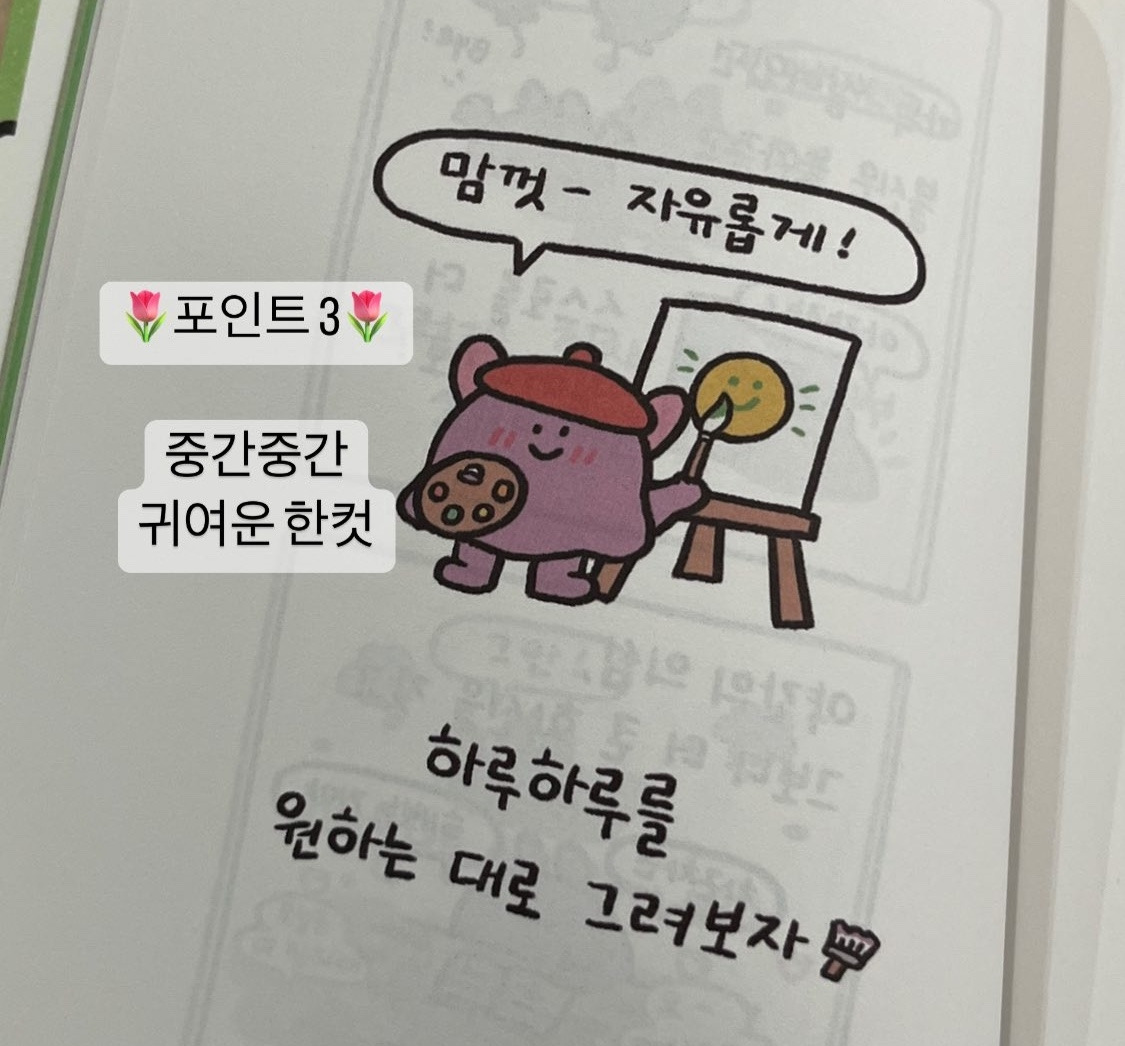 맘껏 - 자유롭게!
🌷포인트 3🌷
중간중간
귀여운 한컷
하루하루를
원하는 대로 그려보자